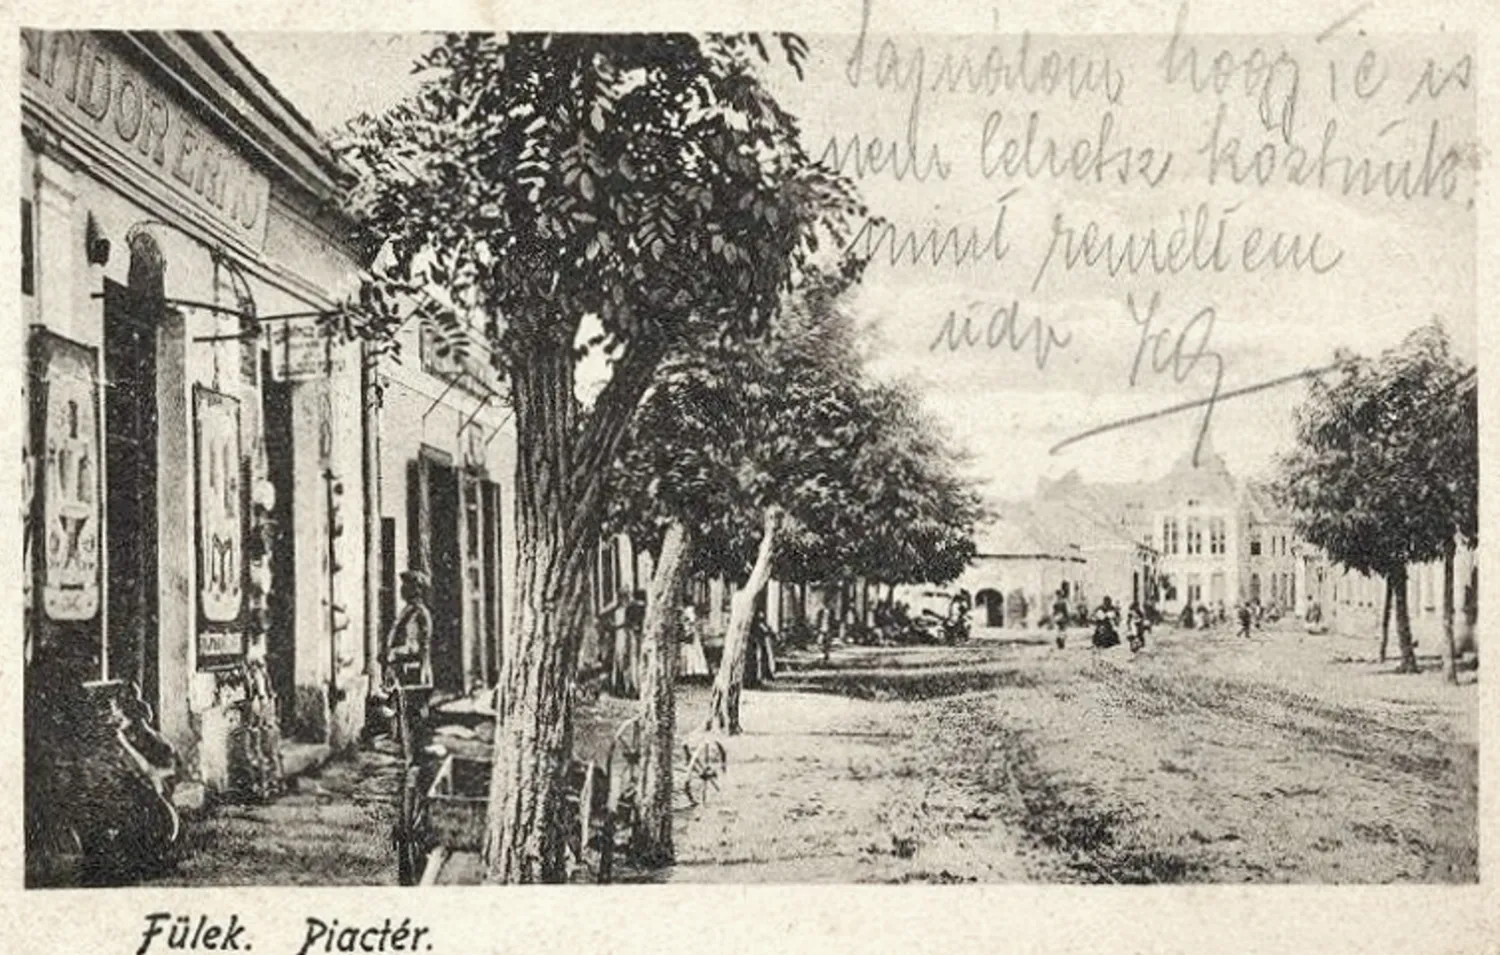 Sajnálom hogy Te is
nem lehetsz köztünk
mint reméltem
üdv.
ÁNDOR ERNŐ
Fülek. Piactér.